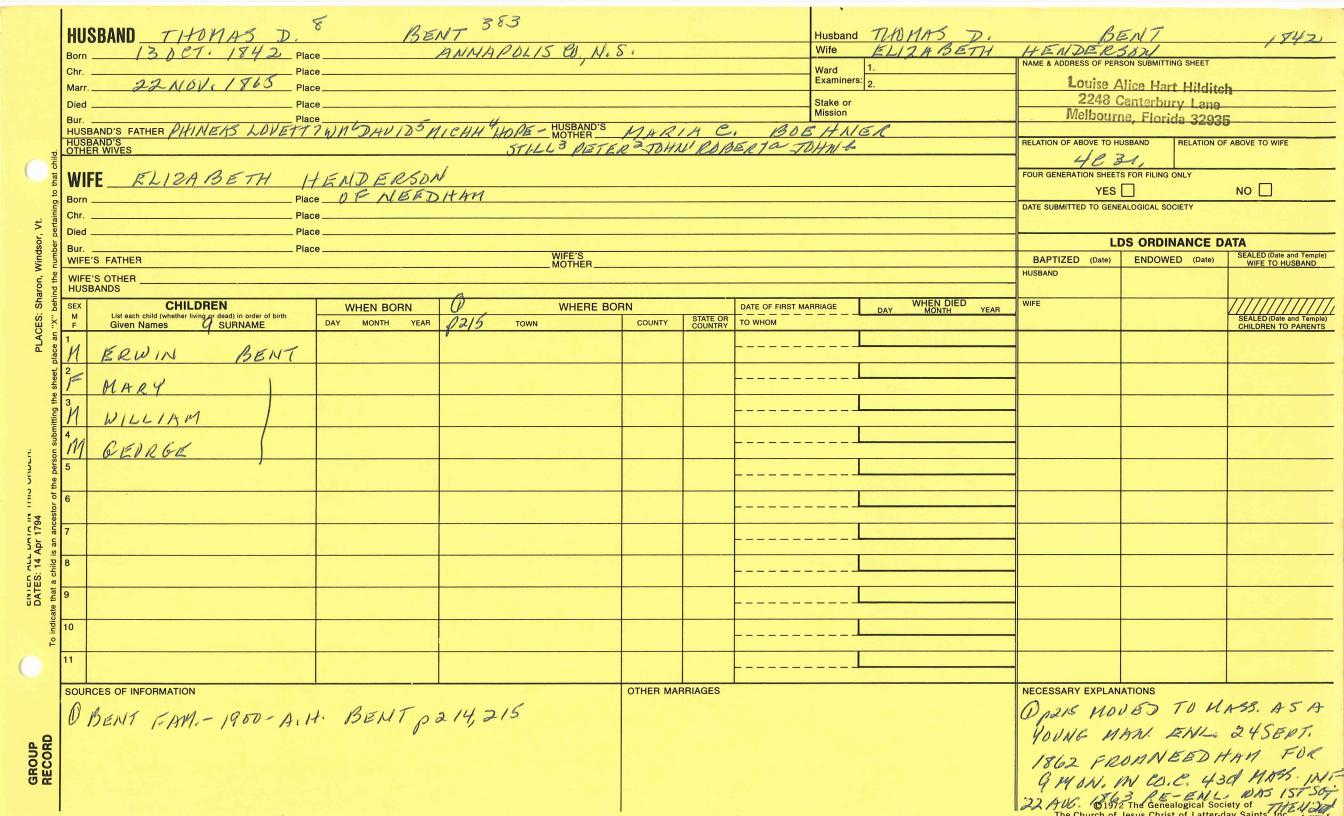 HUSBAND THOMAS D. 8 BENT 383
Born 13 OCT. 1842 Place ANNAPOLIS CO, N.S.
Chr. Place
Marr. 22 NOV. 1865 Place
Died Place
Bur. Place
HUSBAND'S FATHER PHINEAS LOVETT 7 WM 6 DAVID 5 MICAH 4 HOPE- HUSBAND'S MOTHER MARIA C. BOEHNER
HUSBAND'S OTHER WIVES STILL 3 PETER 2 JOHN 1 ROBERT a JOHN b
Husband THOMAS D. BENT 1842
Wife ELIZABETH HENDERSON
Ward Examiners: 1.
2.
Stake or Mission
NAME & ADDRESS OF PERSON SUBMITTING SHEET
Louise Alice Hart Hilditch
2248 Canterbury Lane
Melbourne, Florida 32935
RELATION OF ABOVE TO HUSBAND RELATION OF ABOVE TO WIFE
4C 3r,
FOUR GENERATION SHEETS FOR FILING ONLY
YES NO
DATE SUBMITTED TO GENEALOGICAL SOCIETY
WIFE ELIZABETH HENDERSON
Born Place OF NEEDHAM
Chr. Place
Died Place
Bur. Place
WIFE'S FATHER WIFE'S MOTHER
WIFE'S OTHER HUSBANDS
LDS ORDINANCE DATA
BAPTIZED (Date) ENDOWED (Date) SEALED (Date and Temple) WIFE TO HUSBAND
HUSBAND
WIFE
SEALED (Date and Temple) CHILDREN TO PARENTS
SEX M F
CHILDREN
List each child (whether living or dead) in order of birth
Given Names 9 SURNAME
WHEN BORN
DAY MONTH YEAR
① p215
WHERE BORN
TOWN COUNTY STATE OR COUNTRY
DATE OF FIRST MARRIAGE
TO WHOM
WHEN DIED
DAY MONTH YEAR
1 M ERWIN BENT
2 F MARY
3 M WILLIAM
4 M GEORGE
5
6
7
8
9
10
11
SOURCES OF INFORMATION
① BENT FAM. - 1900 - A.H. BENT p214, 215
OTHER MARRIAGES
NECESSARY EXPLANATIONS
① p215 MOVED TO MASS. AS A
YOUNG MAN. ENL. 24 SEPT.
1862 FROM NEEDHAM FOR
9 MON. IN CO. C. 43d MASS. INF
22 AUG. 1863 RE-ENL. WAS 1ST SGT
THEN 2d
© 1972 The Genealogical Society of
The Church of Jesus Christ of Latter-day Saints, Inc.
PLACES: Sharon, Windsor, Vt.
ENTER ALL DATA IN THIS ORDER:
DATES: 14 Apr 1794
To indicate that a child is an ancestor of the person submitting the sheet, place an "X" behind the number pertaining to that child.
GROUP
RECORD